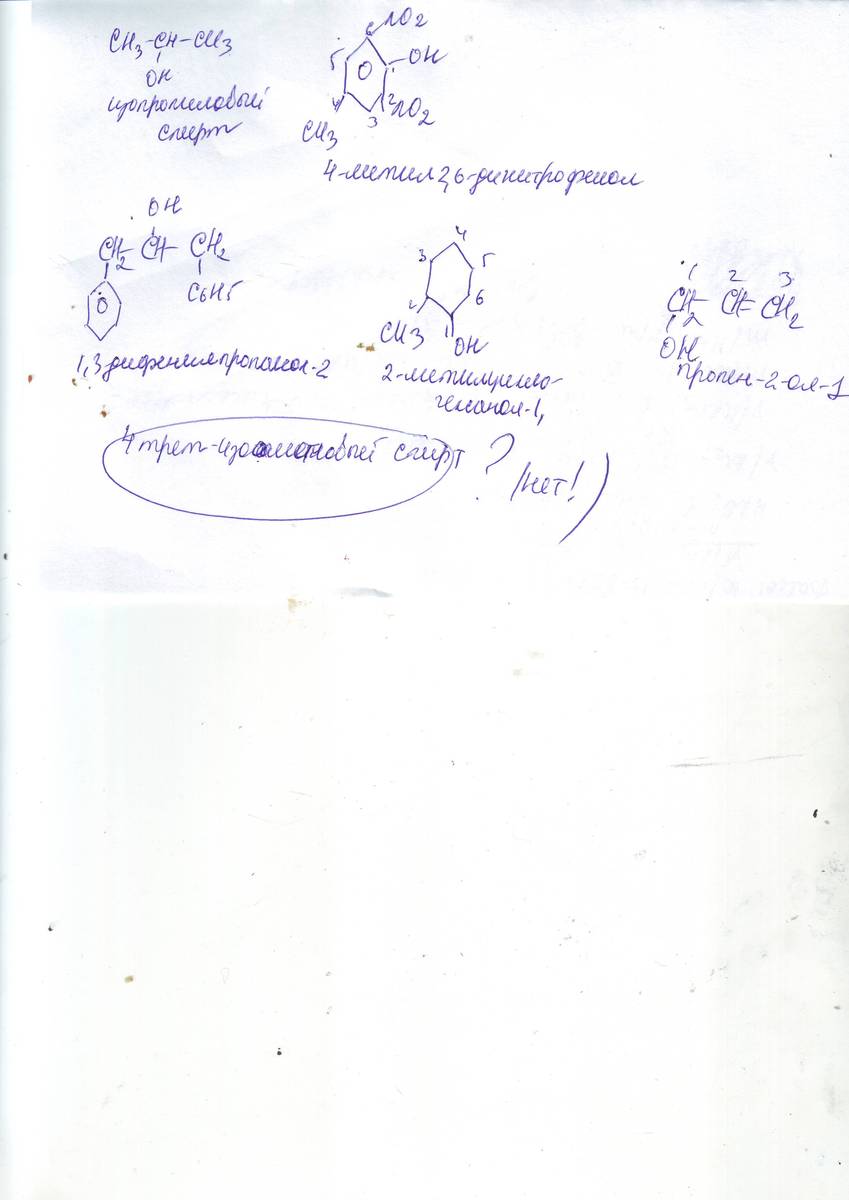 CH3-CH-CH3
OH
изопропиловый
спирт
6 NO2
5 1 OH
4 2 NO2
3
CH3
4-метил 2,6-динитрофенол
OH
CH2 CH CH2
C6H5
1,3 дифенилпропанол-2
4
3 5
2 6
CH3 1
OH
2-метилцикло-
гексанол-1,
1 2 3
CH2 CH= CH2
OH
пропен-2-ол-1
4 трет- спирт ? /нет!)